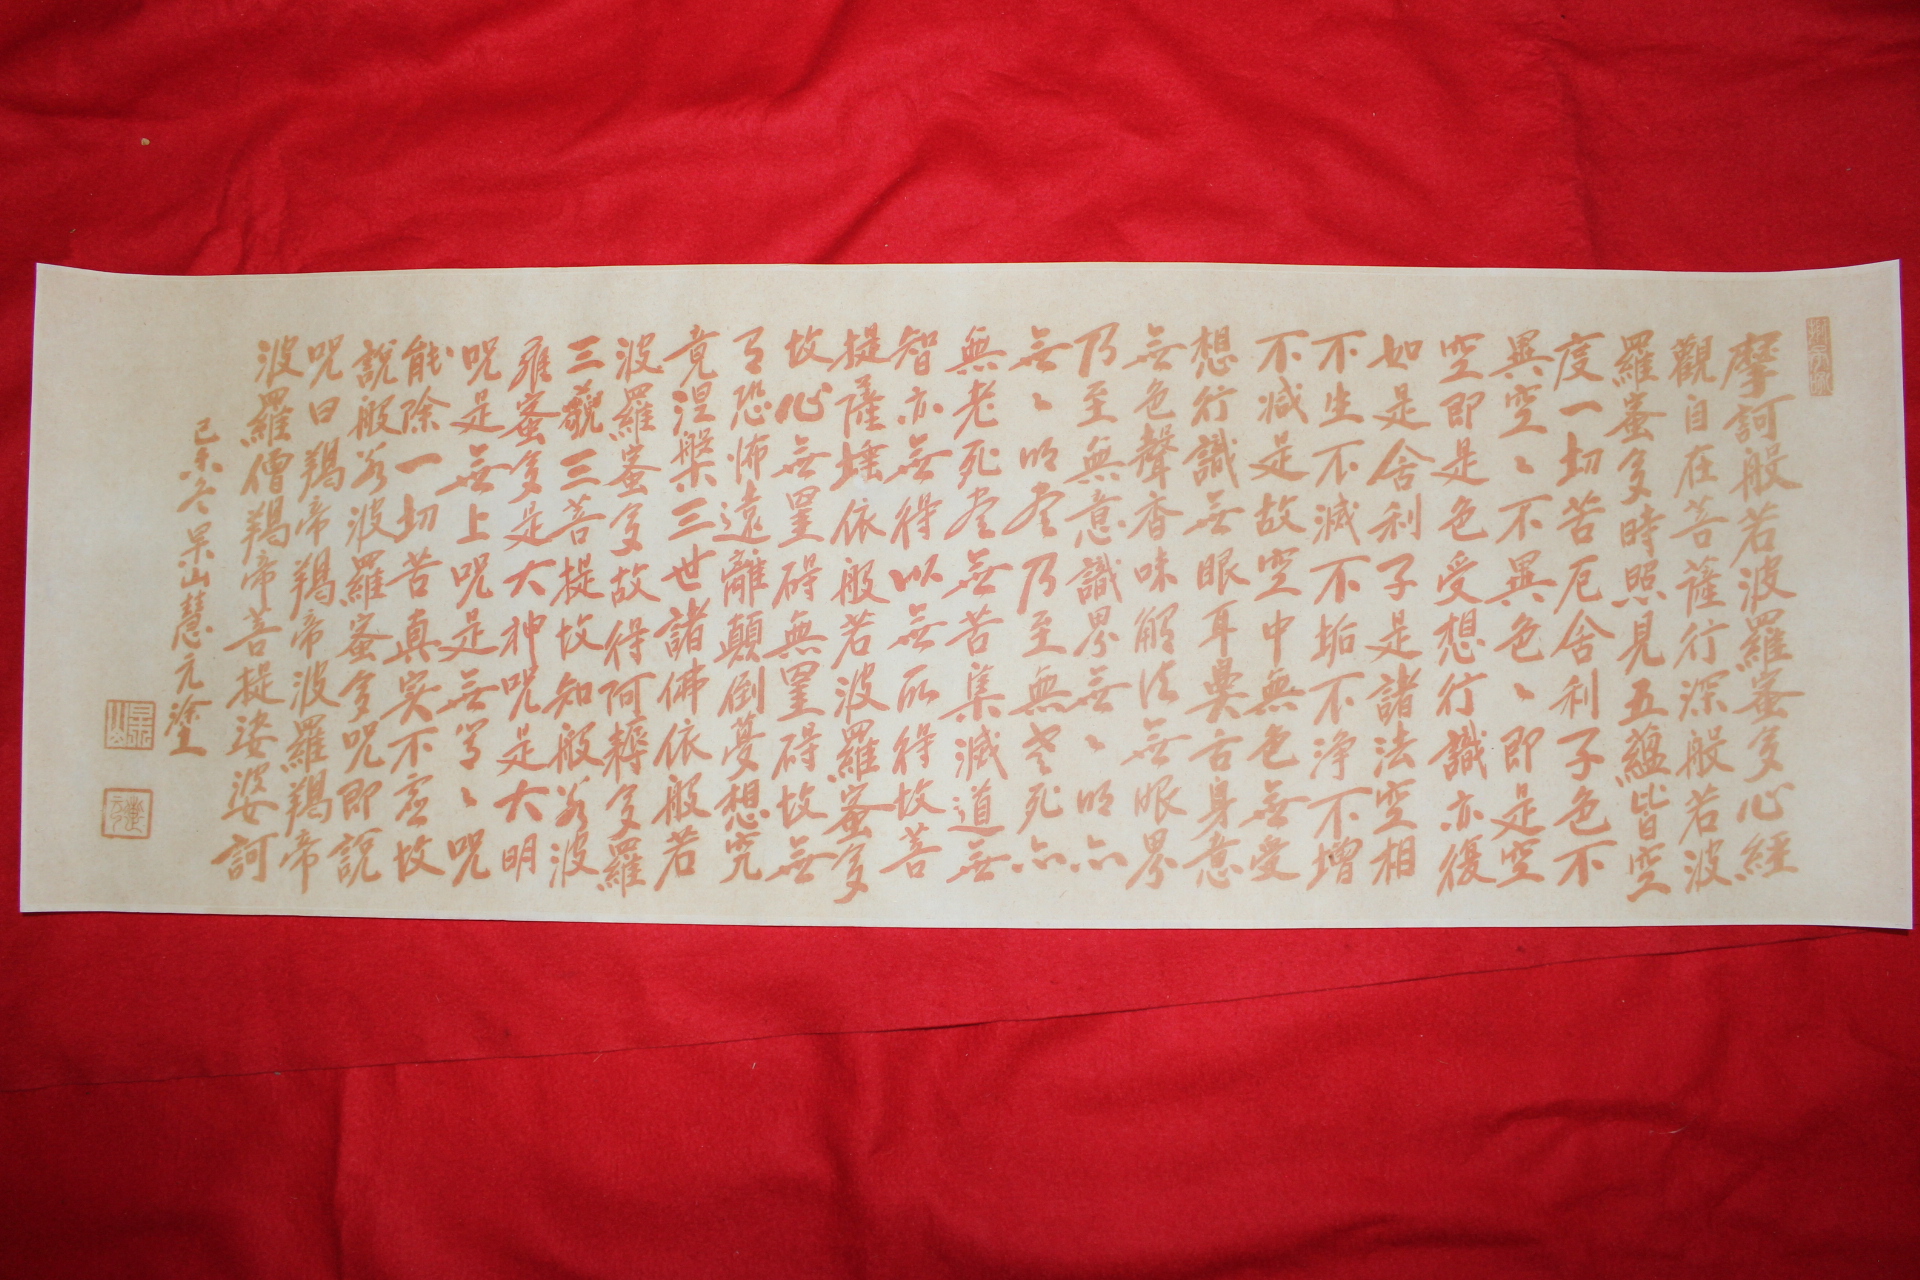 摩訶般若波羅蜜多心經
觀自在菩薩行深般若波
羅蜜多時照見五蘊皆空
度一切苦厄舍利子色不
異空〻不異色〻即是空
空即是色受想行識亦復
如是舍利子是諸法空相
不生不滅不垢不淨不增
不減是故空中無色無受
想行識無眼耳鼻舌身意
無色聲香味觸法無眼界
乃至無意識界無〻明亦
無〻明尽乃至無老死亦
無老死尽無苦集滅道無
智亦無得以無所得故菩
提薩埵依般若波羅蜜多
故心無罣碍無罣碍故無
有恐怖遠離顛倒夢想究
竟涅槃三世諸佛依般若
波羅蜜多故得阿耨多羅
三藐三菩提故知般若波
羅蜜多是大神咒是大明
咒是無上咒是無等〻咒
能除一切苦真实不虛故
說般若波羅蜜多咒即說
咒曰羯帝羯帝波羅羯帝
波羅僧羯帝菩提娑婆訶
己未冬杲山慧元塗
杲山
慧元